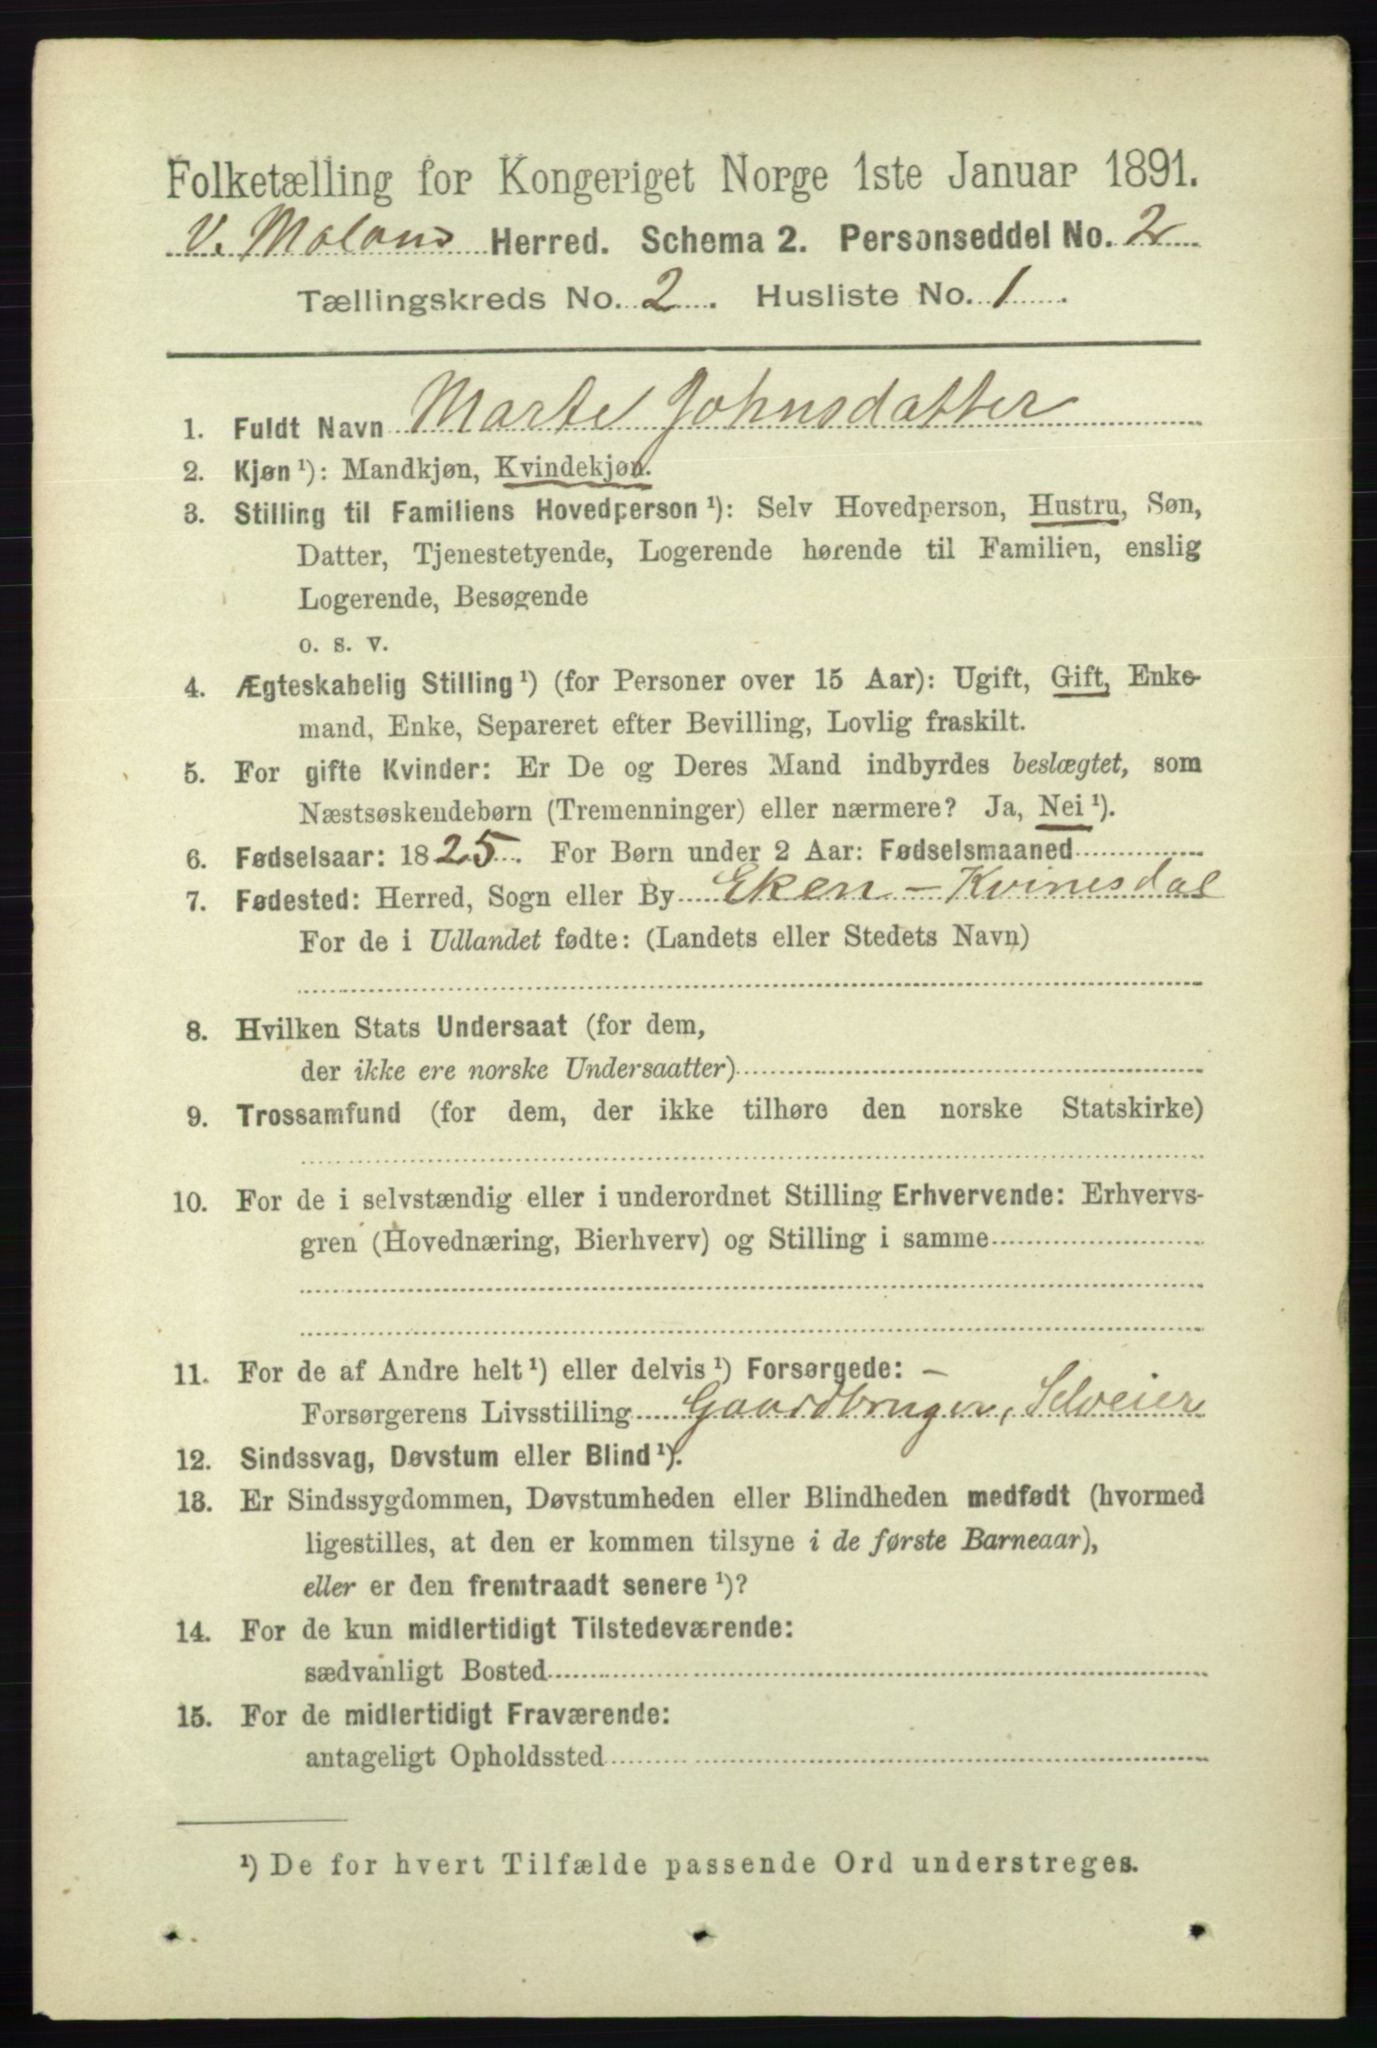 Folketælling for Kongeriget Norge 1ste Januar 1891.
V. Moland Herred. Schema 2. Personseddel No. 2
Tællingskreds No. 2. Husliste No. 1.
1. Fuldt Navn Marte Johnsdatter
2. Kjøn ¹): Mandkjøn, Kvindekjøn.
3. Stilling til Familiens Hovedperson ¹): Selv Hovedperson, Hustru, Søn,
Datter, Tjenestetyende, Logerende hørende til Familien, enslig
Logerende, Besøgende
o. s. v.
4. Ægteskabelig Stilling ¹) (for Personer over 15 Aar): Ugift, Gift, Enke-
mand, Enke, Separeret efter Bevilling, Lovlig fraskilt.
5. For gifte Kvinder: Er De og Deres Mand indbyrdes beslægtet, som
Næstsøskendebørn (Tremenninger) eller nærmere? Ja, Nei ¹).
6. Fødselsaar: 1825. For Børn under 2 Aar: Fødselsmaaned
7. Fødested: Herred, Sogn eller By Eken - Kvinesdal
For de i Udlandet fødte: (Landets eller Stedets Navn)
8. Hvilken Stats Undersaat (for dem,
der ikke ere norske Undersaatter)
9. Trossamfund (for dem, der ikke tilhøre den norske Statskirke)
10. For de i selvstændig eller i underordnet Stilling Erhvervende: Erhvervs-
gren (Hovednæring, Bierhverv) og Stilling i samme
11. For de af Andre helt ¹) eller delvis ¹) Forsørgede: -
Forsørgerens Livsstilling Gaardbruger, Selveier
12. Sindssvag, Døvstum eller Blind ¹).
13. Er Sindssygdommen, Døvstumheden eller Blindheden medfødt (hvormed
ligestilles, at den er kommen tilsyne i de første Barneaar),
eller er den fremtraadt senere ¹)?
14. For de kun midlertidigt Tilstedeværende:
sædvanligt Bosted
15. For de midlertidigt Fraværende:
antageligt Opholdssted
¹) De for hvert Tilfælde passende Ord understreges.